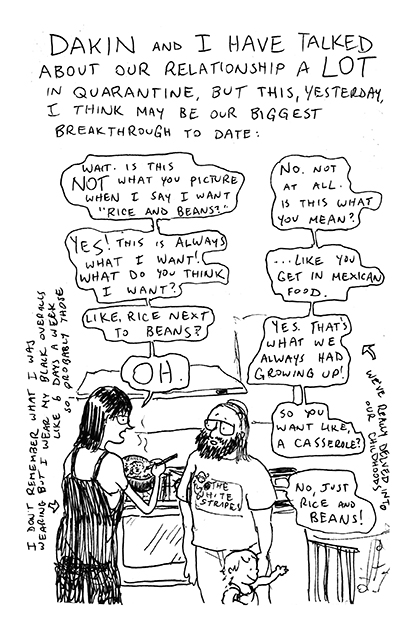 DAKIN AND I HAVE TALKED
ABOUT OUR RELATIONSHIP A LOT
IN QUARANTINE, BUT THIS, YESTERDAY,
I THINK MAY BE OUR BIGGEST
BREAKTHROUGH TO DATE:
WAIT. IS THIS
NOT WHAT YOU PICTURE
WHEN I SAY I WANT
"RICE AND BEANS?"
NO. NOT
AT ALL.
IS THIS WHAT
YOU MEAN?
YES! THIS IS ALWAYS
WHAT I WANT!
WHAT DO YOU THINK
I WANT?
...LIKE YOU
GET IN MEXICAN
FOOD.
LIKE, RICE NEXT
TO BEANS?
YES. THAT'S
WHAT WE
ALWAYS HAD
GROWING UP!
OH.
SO YOU
WANT LIKE,
A CASSEROLE?
NO, JUST
RICE AND
BEANS!
I DON'T REMEMBER WHAT I WAS
WEARING BUT I WEAR MY BLACK OVERALLS
LIKE 6 DAYS A WEEK
SO, PROBABLY THOSE
WE'VE REALLY DELVED INTO
OUR CHILDHOODS
THE
WHITE
STRIPES